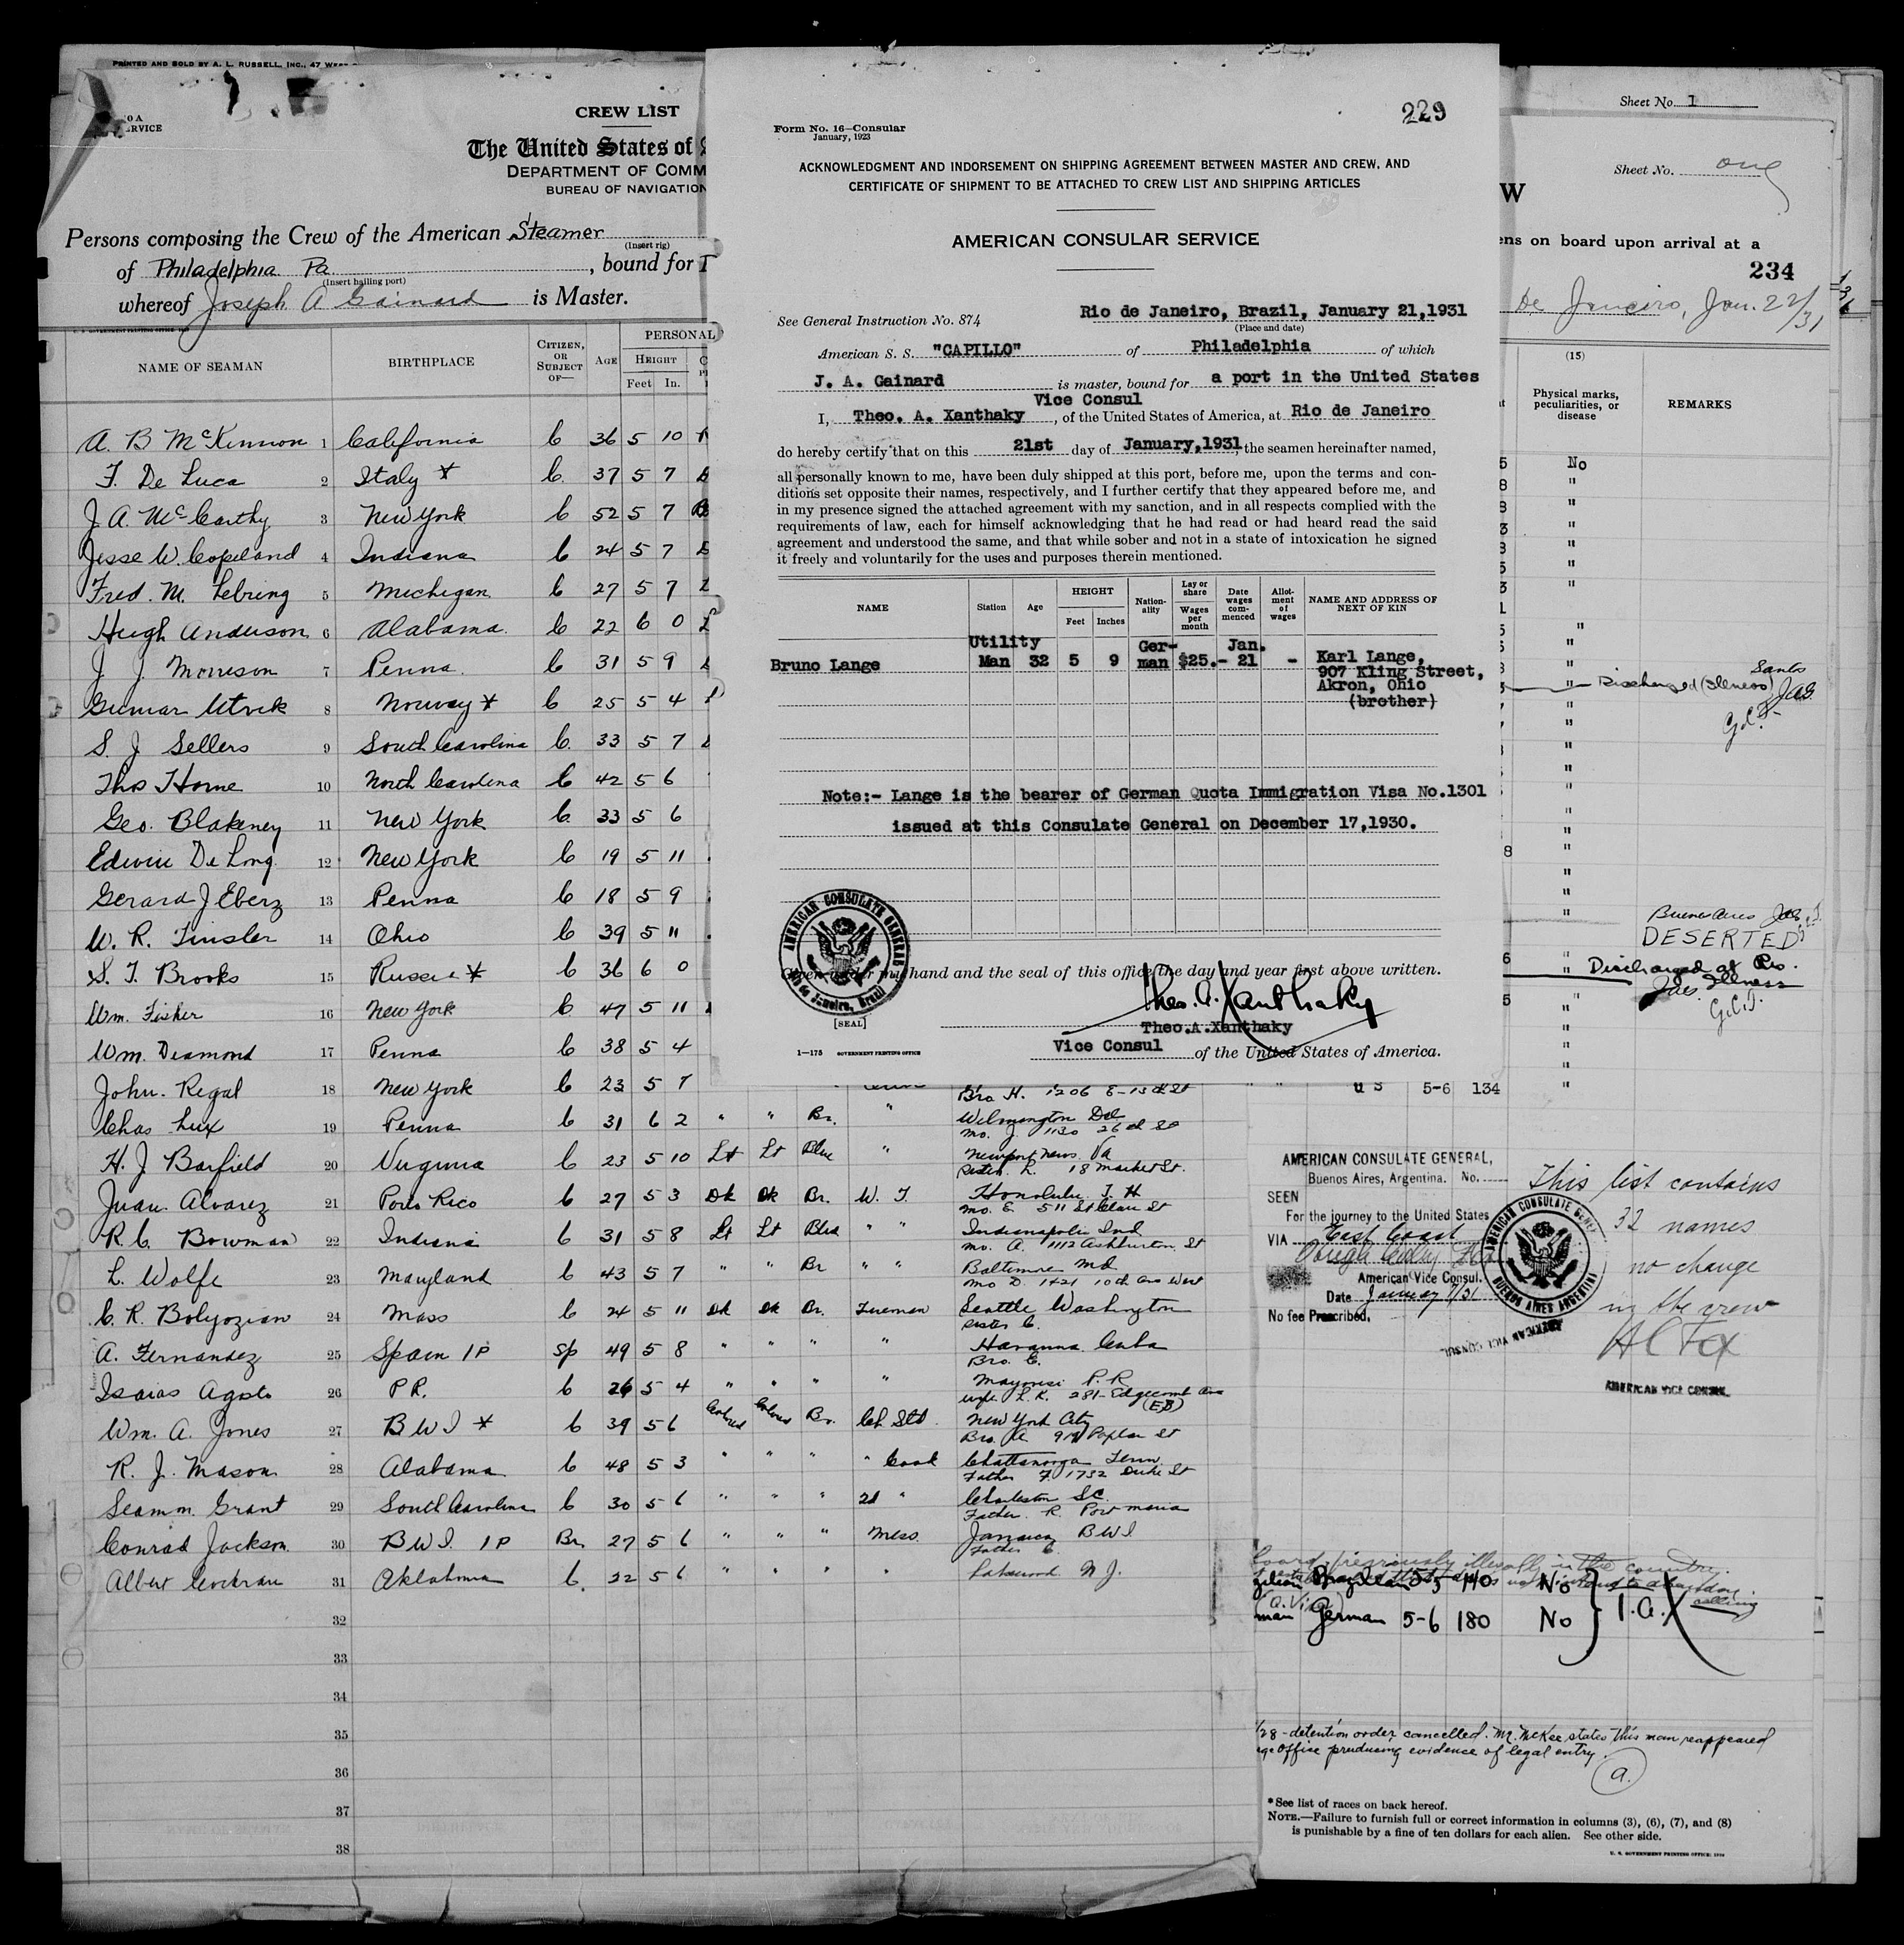 PRINTED AND SOLD BY A. L. RUSSELL, INC., 47
CREW LIST
The United States of
DEPARTMENT OF COMM
BUREAU OF NAVIGATION
Persons composing the Crew of the American Steamer
(Insert rig)
of Philadelphia Pa , bound for
(Insert hailing port)
whereof Joseph A Gainard is Master.
PERSONAL
NAME OF SEAMAN BIRTHPLACE CITIZEN, OR SUBJECT OF— AGE HEIGHT
Feet In.
A. B McKinnon 1 California C 36 5 10
F. De Luca 2 Italy * C. 37 5 7
J. A. McCarthy 3 New York C 52 5 7
Jesse W. Copeland 4 Indiana C 24 5 7
Fred. M. Lebring 5 Michigan C 27 5 7
Hugh Anderson 6 Alabama. C 22 6 0
J. J. Morrison 7 Penna. C 31 5 9
Gunnar Utvik 8 Norway * C 25 5 4
S. J Sellers 9 South Carolina C. 33 5 7
Thos Horne 10 North Carolina C 42 5 6
Geo. Blakeney 11 New York C. 33 5 6
Edwin De Long. 12 New York C 19 5 11
Gerard J Eberz 13 Penna C 18 5 9
W. R. Tinsler 14 Ohio C 39 5 11
S. T. Brooks 15 Russia * C 36 6 0
Wm. Fisher 16 New York C 47 5 11
Wm. Diamond 17 Penna C 38 5 4
John. Regal 18 New York C 23 5 7
Chas Lux 19 Penna C 31 6 2 " " Br. "
H. J Barfield 20 Virginia C 23 5 10 Lt Lt Blue "
Juan Alvarez 21 Porto Rico C 27 5 3 Dk Dk Br. W. T.
R. C. Bowman 22 Indiana C 31 5 8 Lt Lt Blue " "
L. Wolfe 23 Maryland C 43 5 7 " " Br " "
C. R. Bolyozian 24 Mass C 24 5 11 Dk Dk Br. Fireman
A. Fernandez 25 Spain 1P Sp 49 5 8 " " " "
Isaias Agosto 26 P.R. C 26 5 4 " " " "
Wm. A. Jones 27 B W I * C 39 5 6 Colored Colored Br. Ch. Std.
R. J. Mason 28 Alabama C 48 5 3 " " " " Cook
Seamm. Grant 29 South Carolina C 30 5 6 " " " 2d "
Conrad Jackson 30 B W I. 1P Br. 27 5 6 " " " Mess
Albert Cockran 31 Oklahoma C. 22 5 6 " " " "
32
33
34
35
36
37
38
Bro H. 1206 E-13th St
Wilmington Del
Mo. J. 1130 26th St
Newport News. Va
Sister. R. 18 Market St.
Honolulu T. H
Mo. E. 511 St Clair St
Indianapolis Ind
Mo. A. 1112 Ashburton St
Baltimore Md.
Mo D. 1421 10th Ave West
Seattle Washington
Sister C.
Havanna Cuba
Bro. C.
Wife L. K. 281- Edgecomb Ave
New York City
Chattanooga Tenn
Father F. 1732 Duke St
Charleston S.C.
Father. R. Port Maria
Jamaica B W I
Father C.
Lakewood N J.
229
Form No. 16—Consular
January, 1923
ACKNOWLEDGMENT AND INDORSEMENT ON SHIPPING AGREEMENT BETWEEN MASTER AND CREW, AND
CERTIFICATE OF SHIPMENT TO BE ATTACHED TO CREW LIST AND SHIPPING ARTICLES
AMERICAN CONSULAR SERVICE
See General Instruction No. 874 Rio de Janeiro, Brazil, January 21,1931
(Place and date)
American S. S. "CAPILLO" of Philadelphia of which
J. A. Gainard is master, bound for a port in the United States
Vice Consul
I, Theo. A. Xanthaky , of the United States of America, at Rio de Janeiro
do hereby certify that on this 21st day of January,1931, the seamen hereinafter named,
all personally known to me, have been duly shipped at this port, before me, upon the terms and con-
ditions set opposite their names, respectively, and I further certify that they appeared before me, and
in my presence signed the attached agreement with my sanction, and in all respects complied with the
requirements of law, each for himself acknowledging that he had read or had heard read the said
agreement and understood the same, and that while sober and not in a state of intoxication he signed
it freely and voluntarily for the uses and purposes therein mentioned.
NAME Station Age HEIGHT Feet Inches Nation-ality Lay or share Wages per month Date wages com-menced Allot-ment of wages NAME AND ADDRESS OF NEXT OF KIN
Utility Ger- Jan.
Bruno Lange Man 32 5 9 man $25.- 21 - Karl Lange,
907 Kling Street,
Akron, Ohio
(brother)
Note:- Lange is the bearer of German Quota Immigration Visa No.1301
issued at this Consulate General on December 17,1930.
AMERICAN CONSULATE GENERAL
Rio de Janeiro, Brazil
Given under my hand and the seal of this office the day and year first above written.
Theo. A. Xanthaky
[SEAL]
Theo.A.Xanthaky
Vice Consul of the United States of America.
1—175 GOVERNMENT PRINTING OFFICE
Sheet No. 1
Sheet No. one
W
ens on board upon arrival at a
234
De Janeiro, Jan. 22/31
(15)
Physical marks, peculiarities, or disease
REMARKS
No
Santos
Discharged (Illness) JAG
G.C.F.
Buenos Aires JAG
DESERTED
Discharged at Rio.
Illness
U S 5-6 134
AMERICAN CONSULATE GENERAL,
Buenos Aires, Argentina. No.
SEEN
For the journey to the United States
VIA East Coast
American Vice Consul.
Date January 7/31
No fee Prescribed.
AMERICAN CONSULATE GENERAL
BUENOS AIRES ARGENTINA
AMERICAN VICE CONSUL
This list contains
32 names
no change
in the crew
H C Fox
AMERICAN VICE CONSUL
board, previously illegally in the country.
zilian Brazilian 5-5 140 No
man German 5-6 180 No
1/28 - detention order cancelled. Mr. McKee states this man reappeared
age Office producing evidence of legal entry.
a.
*See list of races on back hereof.
NOTE.—Failure to furnish full or correct information in columns (3), (6), (7), and (8)
is punishable by a fine of ten dollars for each alien. See other side.
U. S. GOVERNMENT PRINTING OFFICE: 1930